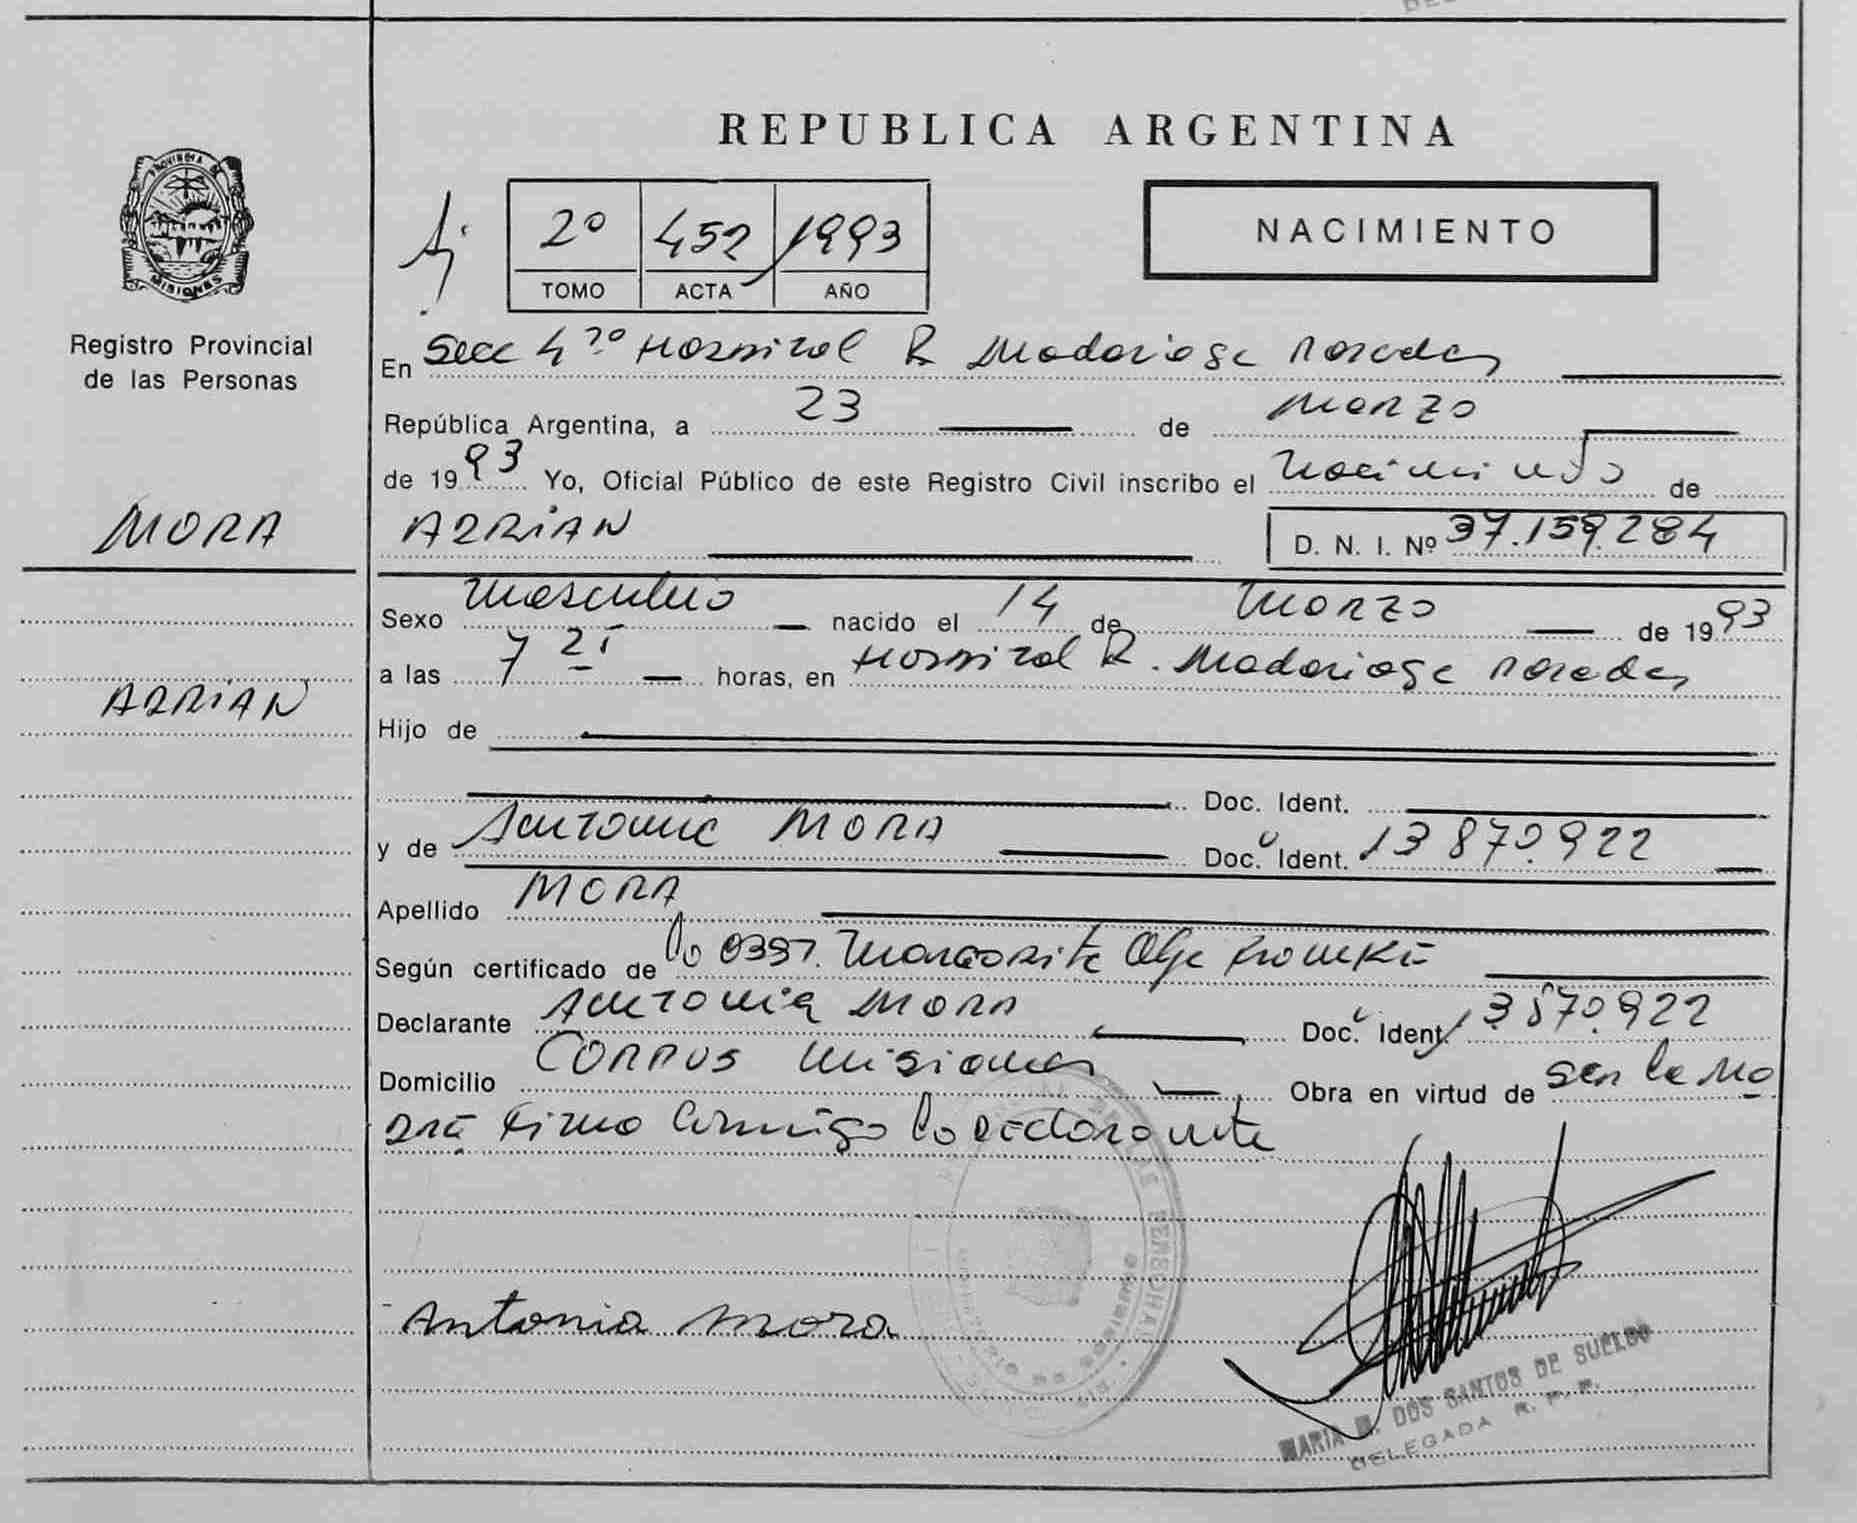 REPUBLICA ARGENTINA
PROVINCIA DE
MISIONES
Registro Provincial
de las Personas
2º 452 1993
TOMO ACTA AÑO
NACIMIENTO
En Secc 4ta Hospital R Madariaga Posadas
República Argentina, a 23 de Marzo
de 1993 Yo, Oficial Público de este Registro Civil inscribo el nacimiento de
MORA
ADRIAN
D. N. I. Nº 37.159.284
Sexo Masculino nacido el 14 de Marzo de 1993
a las 7 horas, en Hospital R. Madariaga Posadas
ADRIAN
Hijo de
Doc. Ident.
y de Antonia MORA Doc. Ident. 13 870.922
Apellido MORA
Según certificado de Margarita Olga
Declarante Antonia MORA Doc. Ident. 13.870.922
Domicilio Corpus Misiones Obra en virtud de ser la ma
dre Firma conmigo la declarante
Antonia mora
MARIA DOS SANTOS DE SUELDO
DELEGADA R. P. P.